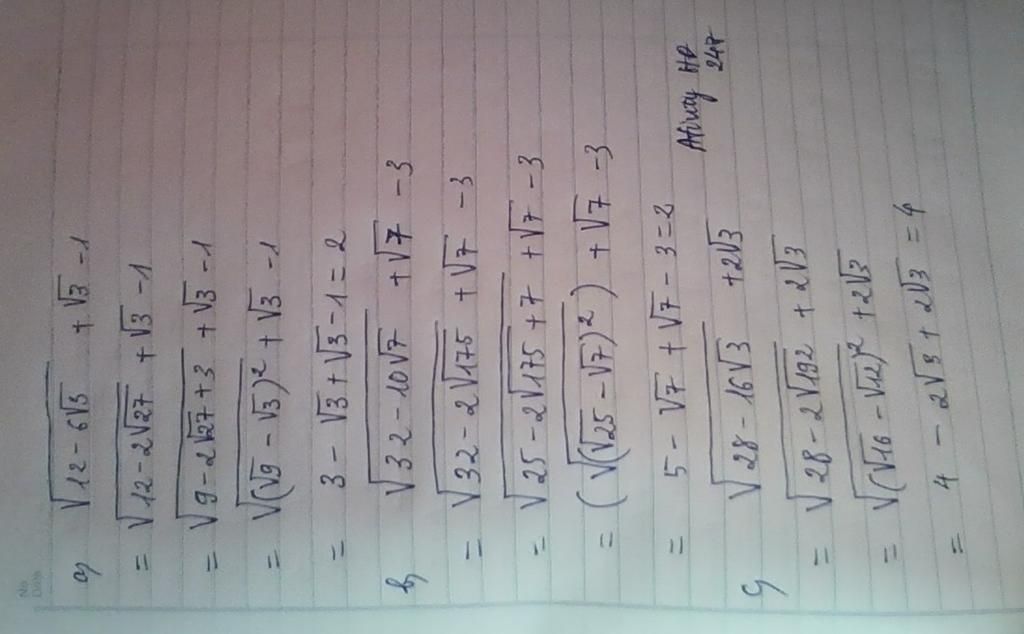 No
Date
a) √(12 - 6√3) + √3 - 1
= √(12 - 2√27) + √3 - 1
= √(9 - 2√27 + 3) + √3 - 1
= √((√9 - √3)²) + √3 - 1
= 3 - √3 + √3 - 1 = 2
b) √(32 - 10√7) + √7 - 3
= √(32 - 2√175) + √7 - 3
= √(25 - 2√175 + 7) + √7 - 3
= (√((√25 - √7)²)) + √7 - 3
= 5 - √7 + √7 - 3 = 2
c) √(28 - 16√3) + 2√3
= √(28 - 2√192) + 2√3
= √((√16 - √12)²) + 2√3
= 4 - 2√3 + 2√3 = 4